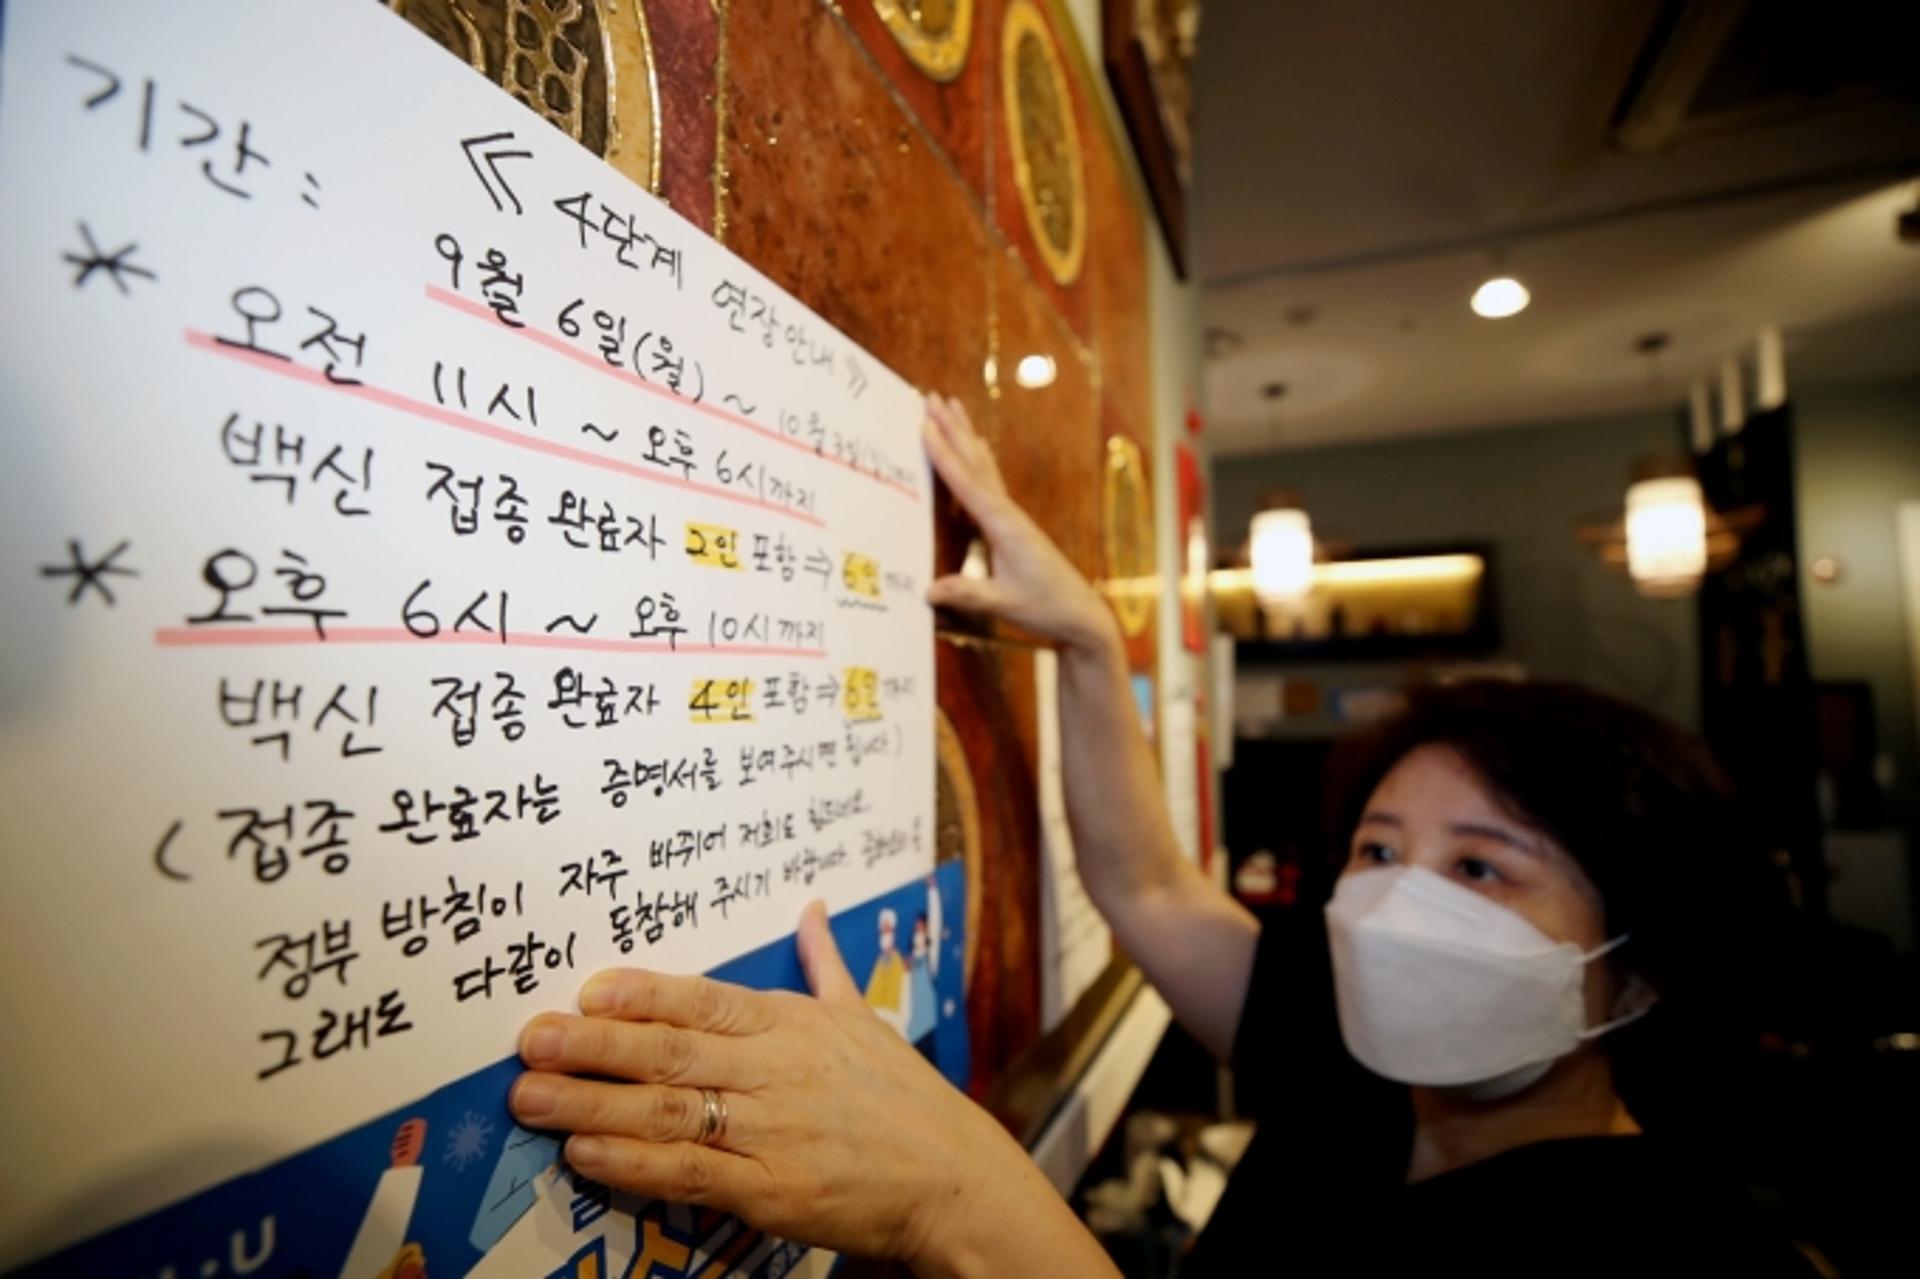 《 4단계 연장안내 》
기간 : 9월 6일(월) ~ 10월 3일
* 오전 11시 ~ 오후 6시까지
백신 접종 완료자 2인 포함 ⇒ 6인까지
* 오후 6시 ~ 오후 10시까지
백신 접종 완료자 4인 포함 ⇒ 6인까지
( 접종 완료자는 증명서를 보여주시면 됩니다.)
정부 방침이 자주 바뀌어 저희도 힘드네요.
그래도 다같이 동참해 주시기 바랍니다.